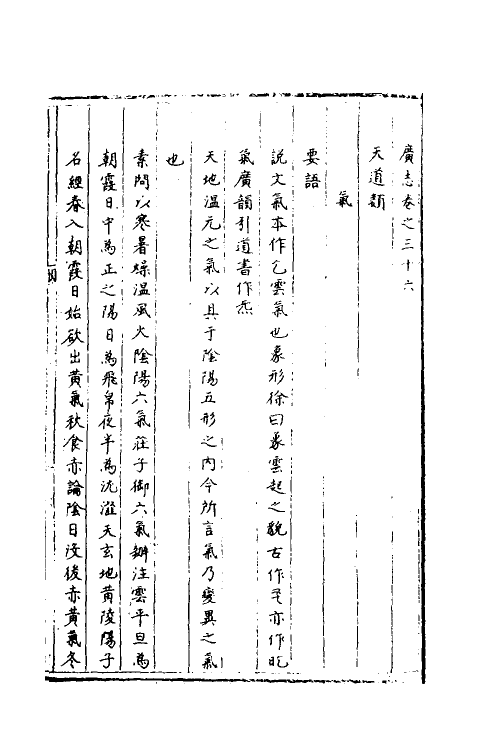 廣志卷之三十六
天道類
氣
要語
說文氣本作乞雲氣也象形徐曰象雲起之貌古作㐳亦作盵
氣廣韻引道書作炁
天地溫元之氣以具于陰陽五形之內今所言氣乃變異之氣
也
素問以寒暑燥溫風火陰陽六氣莊子御六氣辦注雲平旦為
朝霞日中為正之陽日為飛帛夜半為沆瀣天玄地黃陵陽子
名經春入朝霞日始欲出黃氣秋食赤論陰日沒後赤黃氣冬